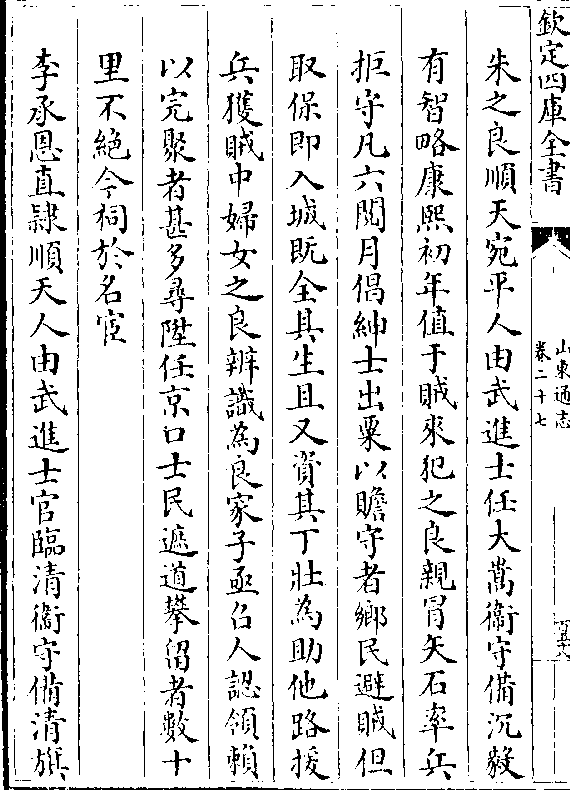 欽定四庫全書
山東通志
卷二十七
朱之良順天宛平人由武進士任大嵩衞守備沉毅
有智略康熙初年值于賊來犯之良親冒矢石率兵
拒守凡六閱月倡紳士出粟以贍守者鄉民避賊但
取保即入城既全其生且又資其丁壯為助他路援
兵獲賊中婦女之良辨識為良家子亟召人認領賴
以完聚者甚多尋陞任京口士民遮道攀留者數十
里不絶今祠於名宦
李承恩直隷順天人由武進士官臨清衞守備清旗